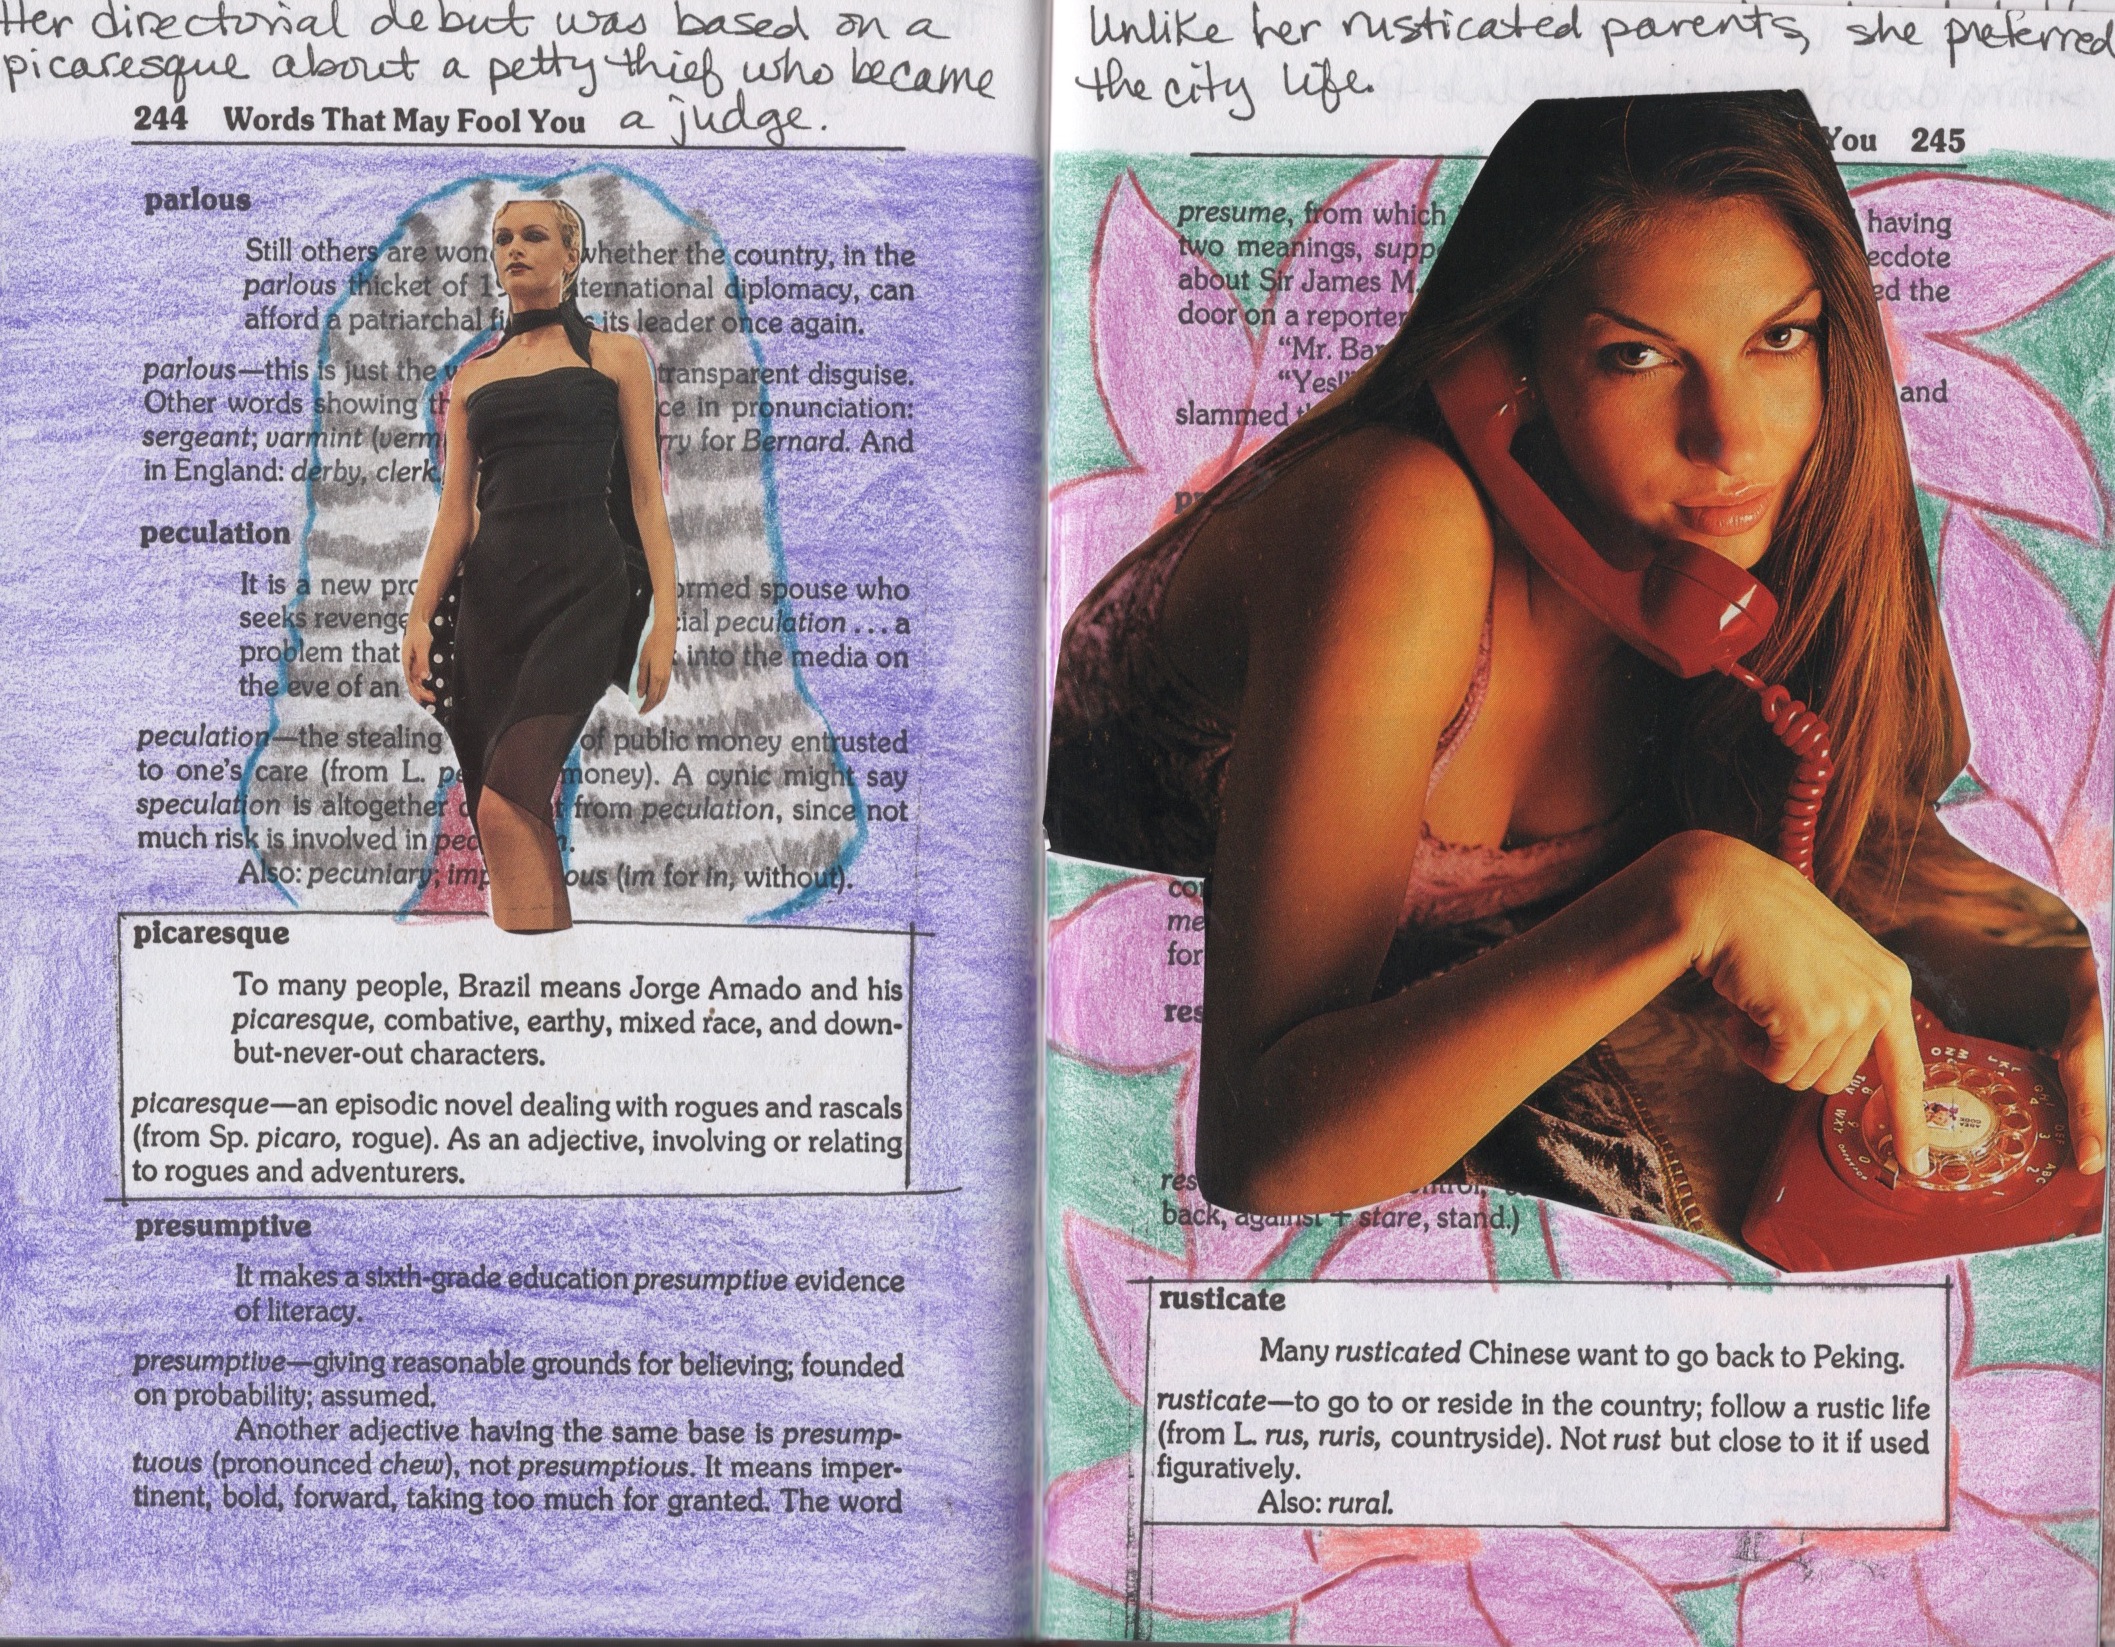 Her directorial debut was based on a
picaresque about a petty thief who became
a judge.
244 Words That May Fool You
parlous
Still others are whether the country, in the
parlous thicket of international diplomacy, can
afford a patriarchal its leader once again.
parlous—this is just the transparent disguise.
Other words showing in pronunciation:
sergeant; varmint for Bernard. And
in England: derby, clerk
peculation
It is a new spouse who
seeks revenge peculation . . . a
problem that into the media on
the eve of an
peculation—the stealing of public money entrusted
to one's care (from L. money). A cynic might say
speculation is altogether from peculation, since not
much risk is involved in
Also: pecuniary; (im for in, without).
picaresque
To many people, Brazil means Jorge Amado and his
picaresque, combative, earthy, mixed race, and down-
but-never-out characters.
picaresque—an episodic novel dealing with rogues and rascals
(from Sp. picaro, rogue). As an adjective, involving or relating
to rogues and adventurers.
presumptive
It makes a sixth-grade education presumptive evidence
of literacy.
presumptive—giving reasonable grounds for believing; founded
on probability; assumed.
Another adjective having the same base is presump-
tuous (pronounced chew), not presumptious. It means imper-
tinent, bold, forward, taking too much for granted. The word
Unlike her rusticated parents, she preferred
the city life.
You 245
presume, from which having
two meanings,
about Sir James M. the
door on a reporter
"Mr.
"Yes!"
slammed and
back, against + stare, stand.)
rusticate
Many rusticated Chinese want to go back to Peking.
rusticate—to go to or reside in the country; follow a rustic life
(from L. rus, ruris, countryside). Not rust but close to it if used
figuratively.
Also: rural.